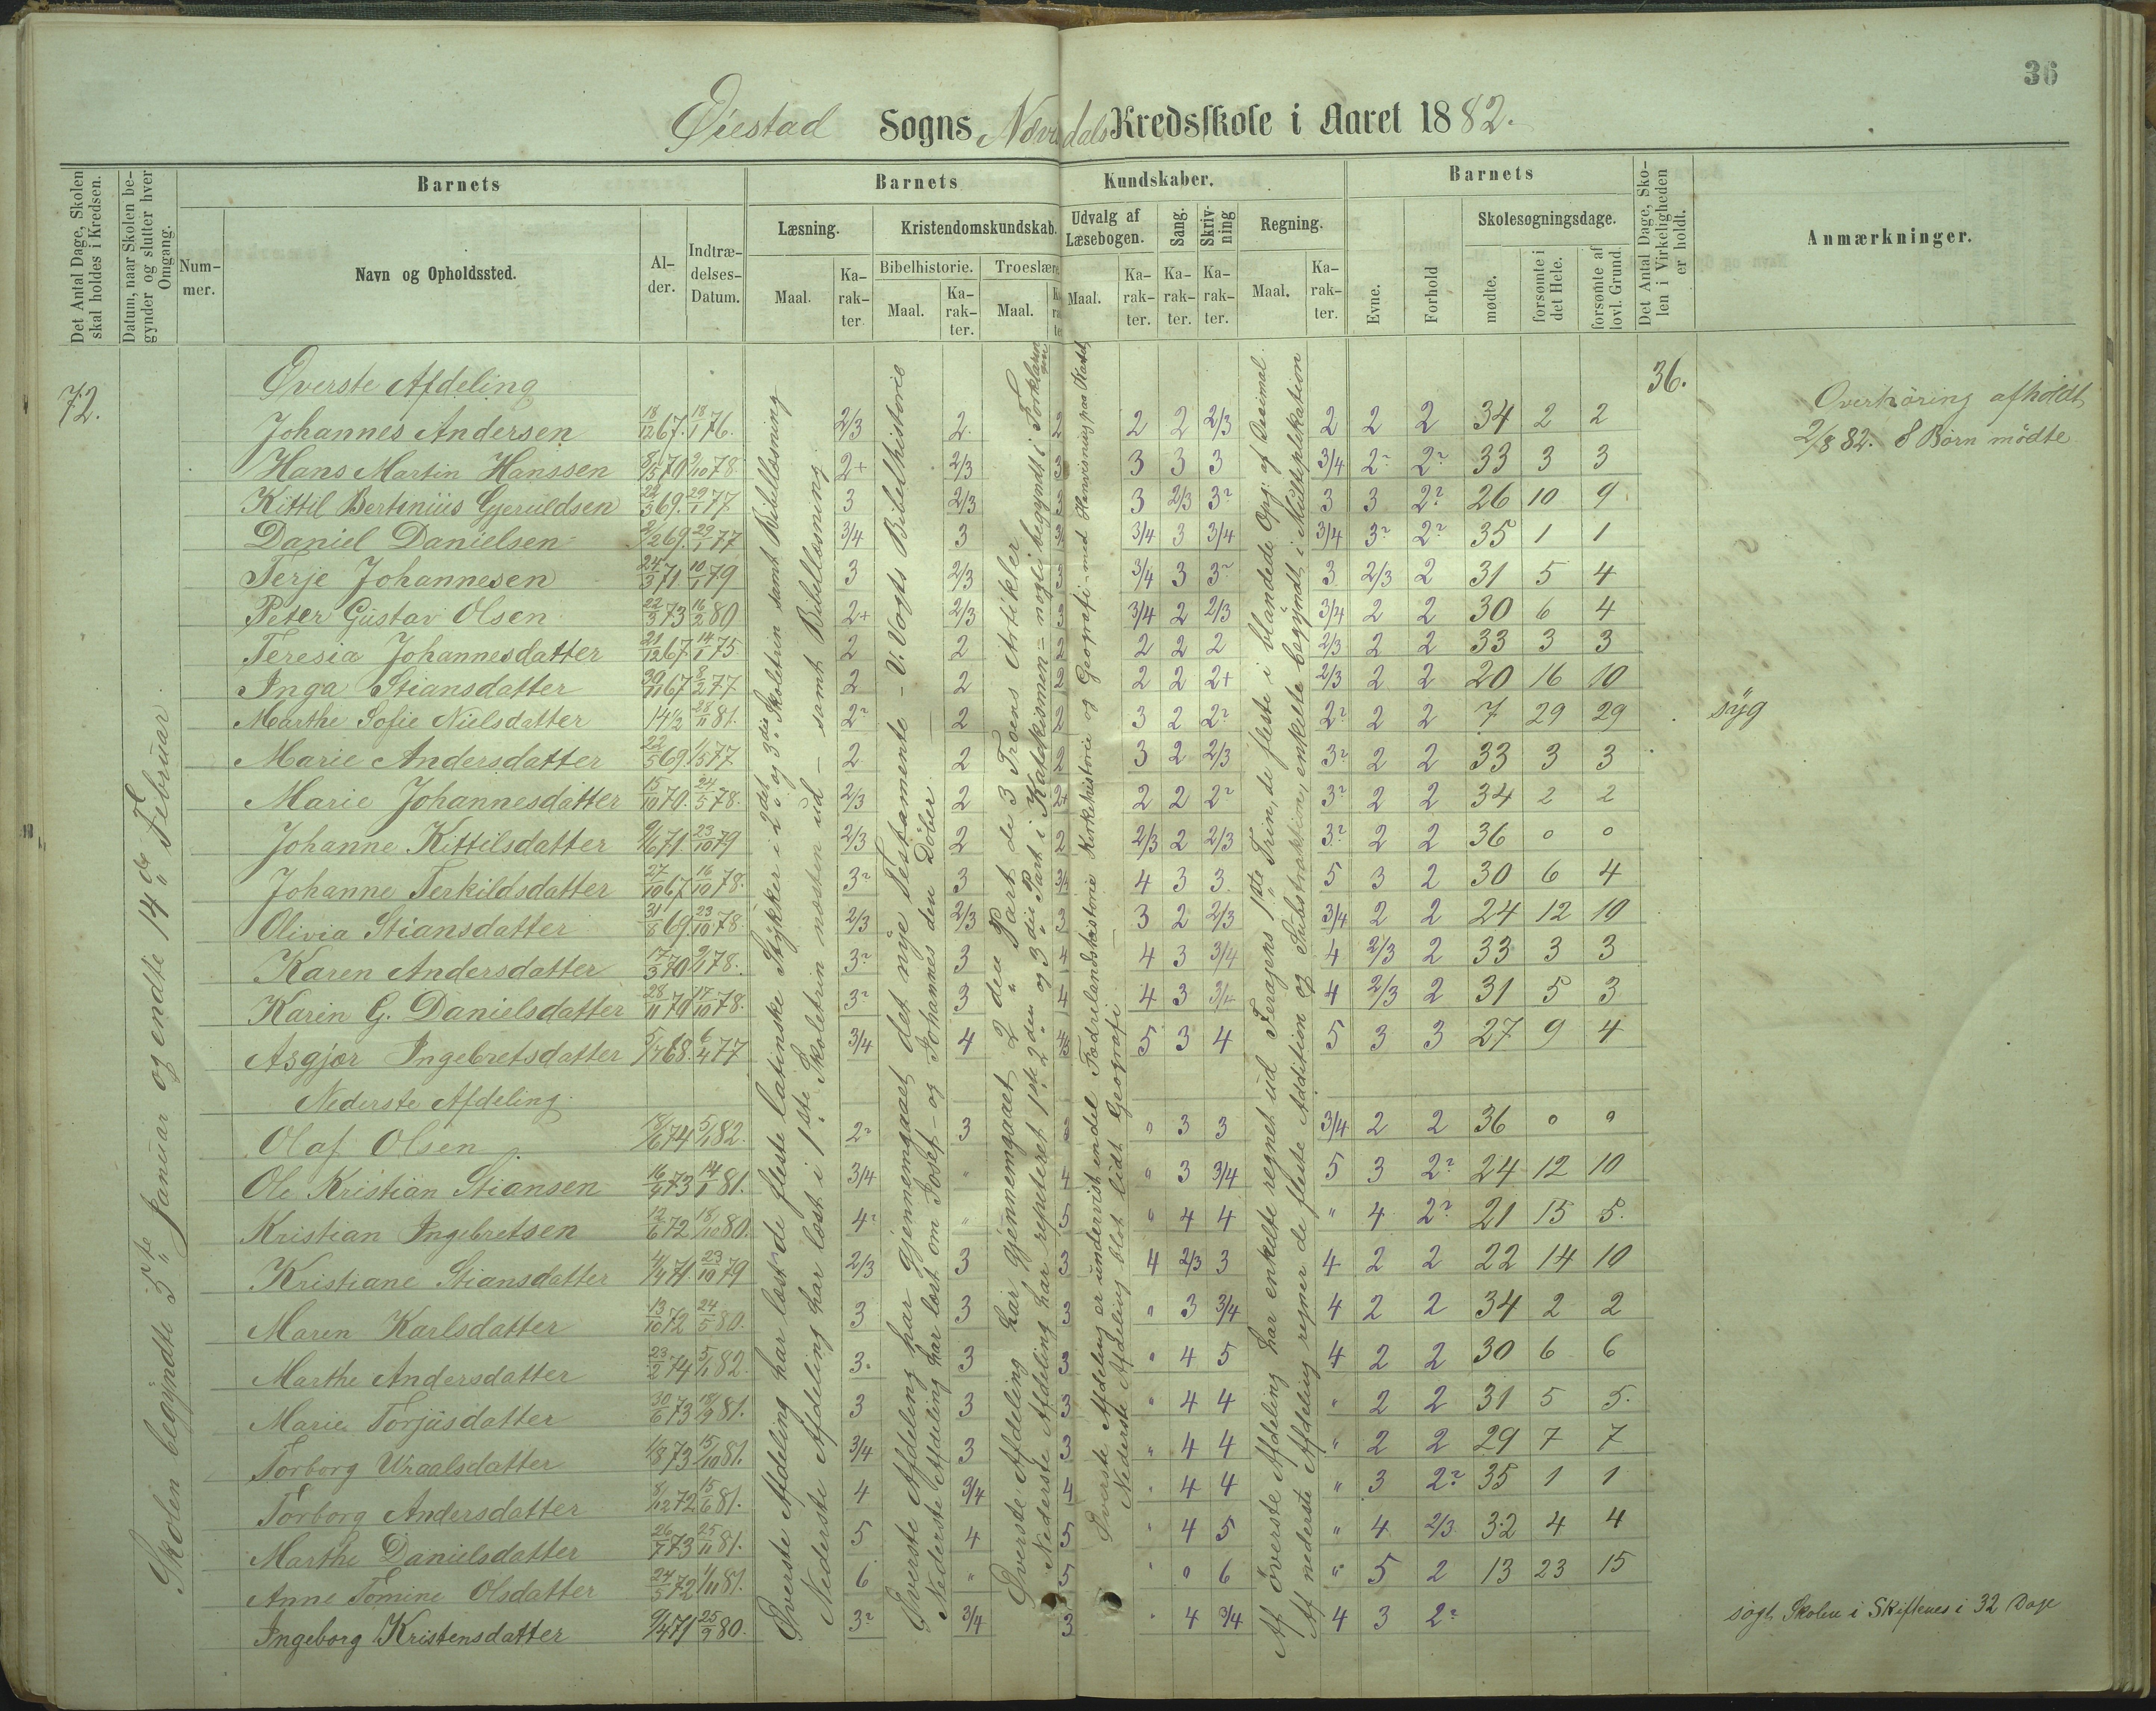 36
Øiestad Sogns Nævesdals Kredsskole i Aaret 1882.
Det Antal Dage, Skolen skal holdes i Kredsen.
Datum, naar Skolen begynder og slutter hver Omgang.
Barnets
Nummer.
Navn og Opholdssted.
Alder.
Indtrædelses-Datum.
Barnets Kundskaber.
Læsning.
Maal.
Karakter.
Kristendomskundskab.
Bibelhistorie.
Maal.
Karakter.
Troeslære
Maal.
Udvalg af Læsebogen.
Maal.
Karakter.
Sang.
Karakter.
Skrivning
Karakter.
Regning.
Maal.
Karakter.
Barnets
Evne.
Forhold
Skolesøgningsdage.
mødte.
forsømte i det Hele.
forsømte af lovl. Grund.
Det Antal Dage, Skolen i Virkeligheden er holdt.
Anmærkninger.
72.
Skolen begyndte 5te Januar og endte 14de Februar.
Øverste Afdeling har læst de fleste latinske Stykker i 2det og 3die Skoletrin samt Bibellæsning
Nederste Afdeling har læst i 1ste Skoletrin næsten ud – samt Bibellæsning
Øverste Afdeling har gjennemgaaet det nye Testamente – V. Vogts Bibelhistorie
Nederste Afdeling har læst om Josef – og Johannes den Døber
Øverste Afdeling har gjennemgaaet 2den Part de 3 Troens Artikler
Nederste Afdeling har repeteret 1ste 2den og 3die Part i Katekismen – nogle begyndt i Forklaringen
Øverste Afdeling er undervist en del Fædrelandshistorie Kirkehistorie og Geografi – med Henvisning paa Kartet
Nederste Afdeling blot lidt Geografi
Af øverste Afdeling har enkelte regnet ud Feragens 1ste Trin, de fleste i blandede Opg: af Desimal.
Af nederste Afdeling regner de fleste Addition og Substraktion, enkelte begyndt i Multiplikation
36.
Overhøring afholdt
2/8 82. 8 Børn mødte
Øverste Afdeling
Johannes Andersen 18/12 67. 18/1 76. 2/3 2. 2 2 2 2/3 2 2 2 34 2 2
Hans Martin Hanssen 8/5 70 9/10 78. 2+ 2/3 3 3 3 3 3/4 2? 2? 33 3 3
Kittil Bertinius Gjeruldsen 22/3 69. 29/1 77 3 2/3 3 3 2/3 3? 3 3 2? 26 10 9
Daniel Danielsen 2/2 69. 29/1 77 3/4 3 3/4 3 3/4 3/4 3? 2? 35 1 1
Terje Johannesen 24/3 71 10/1 79 3 2/3 3 3/4 3 3? 3 2/3 2 31 5 4
Peter Gustav Olsen 22/3 73 16/2 80 2+ 2/3 3 3/4 2 2/3 3/4 2 2 30 6 4
Teresia Johannesdatter 21/12 67. 14/1 75 2 2 2 2 2 2 2/3 2 2 33 3 3
Inga Stiansdatter 30/11 67 8/2 77 2 2 2 2 2 2+ 2/3 2 2 20 16 10
Marthe Sofie Nielsdatter 14 1/2 28/11 81. 2? 2 2 3 2 2? 2? 2 2 7 29 29 syg
Marie Andersdatter 22/5 69 1/5 77 2 2 2 3 2 2/3 3? 2 2 33 3 3
Marie Johannesdatter 15/10 70. 24/5 78. 2/3 2 2+ 2 2 2? 3? 2 2 34 2 2
Johanne Kittilsdatter 9/6 71 23/10 79 2/3 2 2 2/3 2 2/3 3? 2 2 36 0 0
Johanne Terkildsdatter 27/10 67 16/10 78. 3? 3 3/4 4 3 3 5 3 2 30 6 4
Olivia Stiansdatter 31/5 69 23/10 78. 2/3 2/3 3 3 2 2/3 3/4 2 2 24 12 10
Karen Andersdatter 17/3 70 9/1 78. 3? 3 4 4 3 3/4 4 2/3 2 33 3 3
Karen G. Danielsdatter 28/11 70 17/10 78. 3? 3 4 4 3 3/4 4 2/3 2 31 5 3
Asgjør Ingebretsdatter 5/7 68. 6/4 77 3/4 4 5 3 4 5 3 3 27 9 4
Nederste Afdeling.
Olaf Olsen 18/6 74 5/1 82. 2? 3 3 " 3 3 3/4 2 2 36 0 0
Ole Kristian Stiansen 16/9 73 14/1 81. 3/4 " 4 " 3 3/4 5 3 2? 24 12 10
Kristian Ingebretsen 12/6 72 18/10 80. 4? " 5 " 4 4 " 4 2? 21 15 5.
Kristiane Stiansdatter 4/9 71. 23/10 79 2/3 3 3 4 2/3 3 4 2 2 22 14 10
Maren Karlsdatter 13/10 72 24/5 80. 3 3 3 " 3 3/4 4 2 2 34 2 2
Marthe Andersdatter 23/2 74 5/1 82. 3. 3 3 " 4 5 4 2 2 30 6 6
Marie Torjusdatter 30/6 73 18/9 81. 3 3 3 " 4 4 " 2 2 31 5 5.
Torborg Uraalsdatter 1/8 73 15/10 81. 3/4 3 3 " 4 4 " 2 2 29 7 7
Torborg Andersdatter 8/12 72 15/6 81. 4 3/4 4 " 4 4 " 3 2? 35 1 1
Marthe Danielsdatter 26/7 73 25/11 81. 5 4 5 " 4 5 " 4 2/3 32 4 4
Anne Tomine Olsdatter 24/5 72 1/11 81. 6 " 5 " 0 6 " 5 2 13 23 15
Ingeborg Kristensdatter 9/4 71 25/9 80. 3? 3/4 3 " 4 3/4 4 3 2? søgt Skolen i Skiftenes i 32 Dage